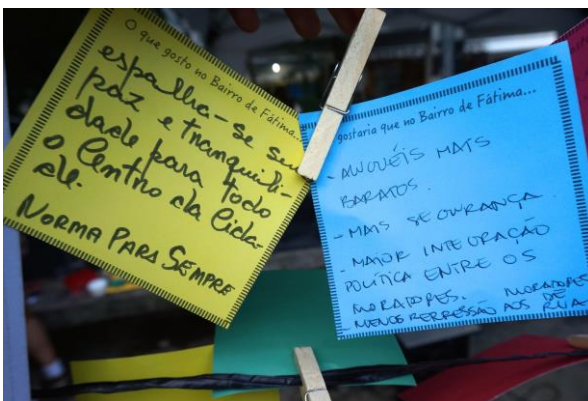 O que gosto no Bairro de Fátima...
espalha-se sua
paz e tranquili-
dade para todo
o Centro da Cida-
de.
NORMA PARA SEMPRE
gostaria que no Bairro de Fátima...
- ALUGUÉIS MAIS
BARATOS.
- MAIS SEGURANÇA
- MAIOR INTEGRAÇÃO
POLÍTICA ENTRE OS
MORADORES.
- MENOS REPRESSÃO AOS MORADORES
DE RUA